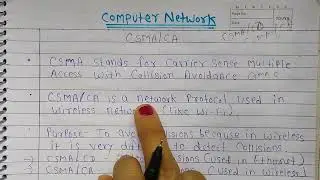 Computer Network
CSMA/CA
CSMA stands for Carrier Sense Multiple
Access with Collision Avoidance
CSMA/CA is a network Protocol used in
Wireless Network (like Wi-Fi)
Purpose: To avoid collisions because in wireless
it is very to detect collisions.
CSMA/CD (used in Ethernet)
CSMA/CA (used in Wireless)